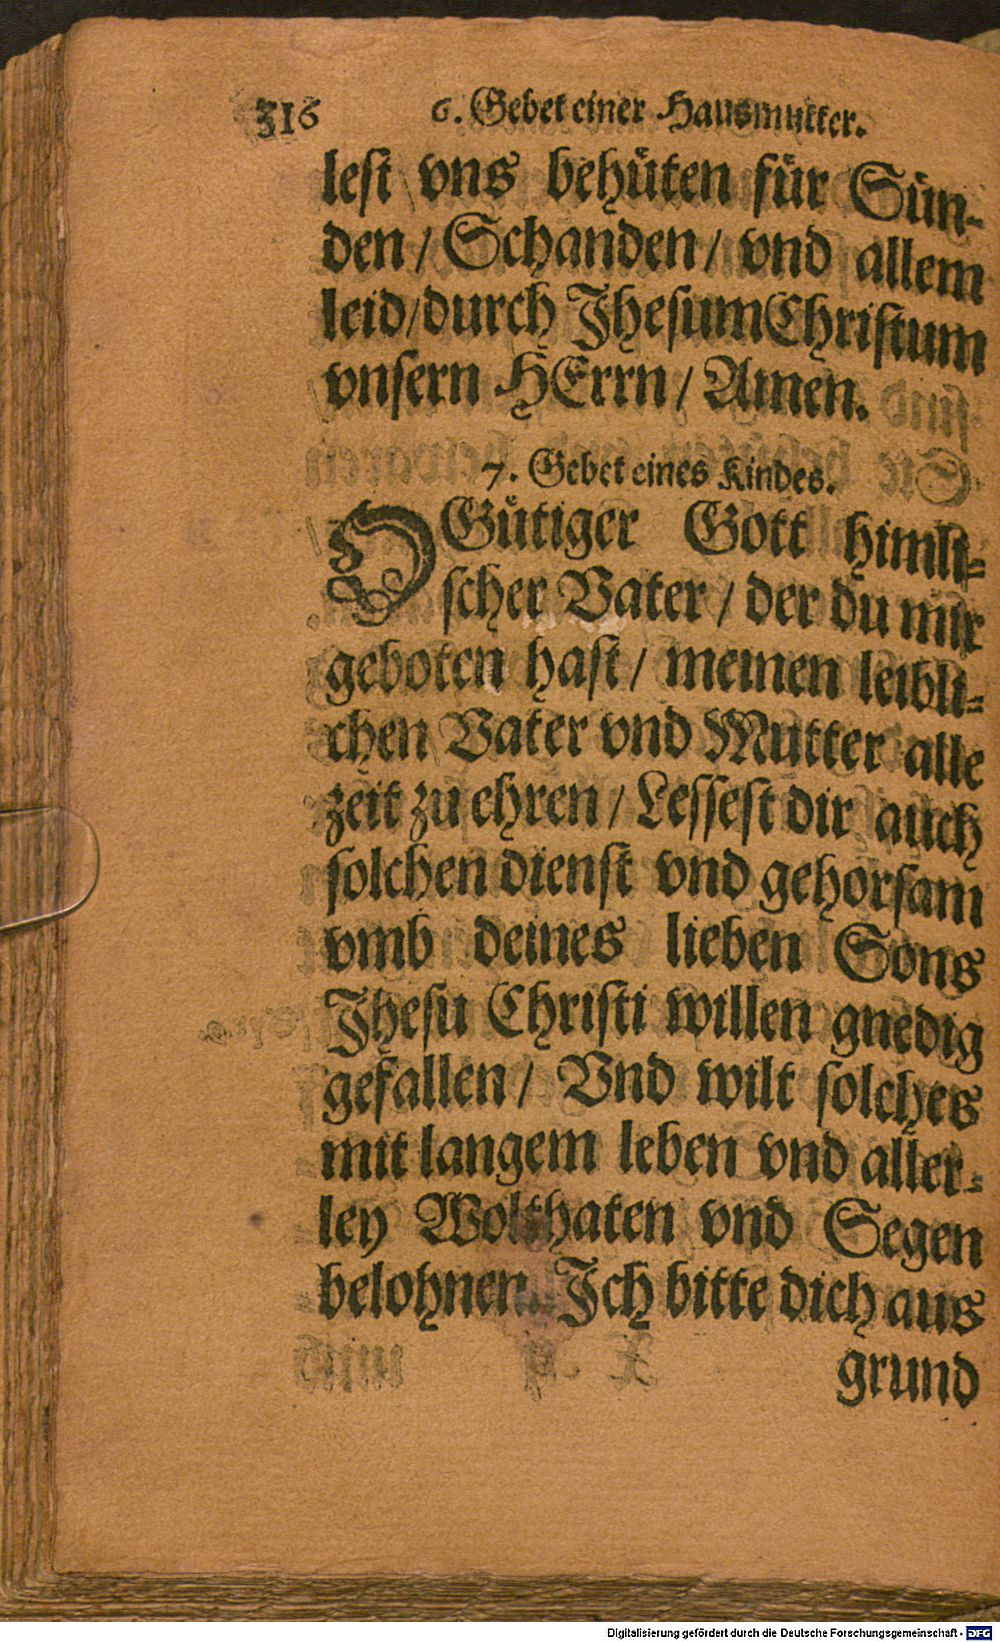 316 6. Gebet einer Hausmutter.
lest vns behüten für Sün-
den / Schanden / vnd allem
leid / durch Jhesum Christum
vnsern HErrn / Amen.
7. Gebet eines Kindes.
O Gütiger Gott himli-
scher Vater / der du mir
geboten hast / meinen leibli-
chen Vater vnd Mutter alle
zeit zu ehren / Lessest dir auch
solchen dienst vnd gehorsam
vmb deines lieben Sons
Jhesu Christi willen gnedig
gefallen / Vnd wilt solches
mit langem leben vnd aller-
ley Wolthaten vnd Segen
belohnen. Ich bitte dich aus
grund
Digitalisierung gefördert durch die Deutsche Forschungsgemeinschaft - DFG